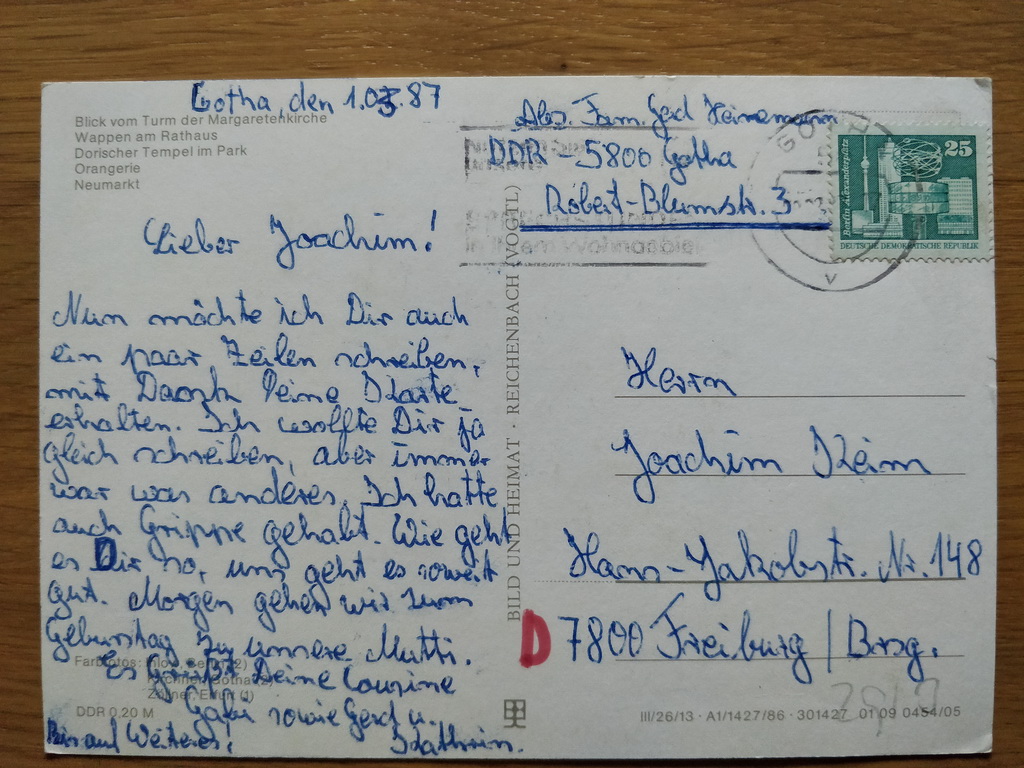 Gotha, den 1.03.87
Blick vom Turm der Margaretenkirche
Wappen am Rathaus
Dorischer Tempel im Park
Orangerie
Neumarkt
Lieber Joachim!
Nun möchte ich Dir auch
ein paar Zeilen schreiben,
mit Dank Deine Karte
erhalten. Ich wollte Dir ja
gleich schreiben, aber immer
war was anderes. Ich hatte
auch Grippe gehabt. Wie geht
es Dir so, uns geht es soweit
gut. Morgen gehen wir zum
Geburtstag zu unsere Mutti.
Es grüßt Deine Cousine
Gabi sowie Gerd u.
Kathrin.
Bis auf Weiteres!
Farbfotos:
DDR 0,20 M
BILD UND HEIMAT · REICHENBACH (VOGTL)
Abs. Fam. Gerd Heinemann
DDR - 5800 Gotha
Robert-Blumstr. 3
in Ihrem Wohngebiet
GOTHA
v
25
Berlin Alexanderplatz
DEUTSCHE DEMOKRATISCHE REPUBLIK
Herrn
Joachim Keim
Hans-Jakobstr. Nr. 148
D 7800 Freiburg / Brsg.
III/26/13 · A1/1427/86 · 301427 01 09 0454/05